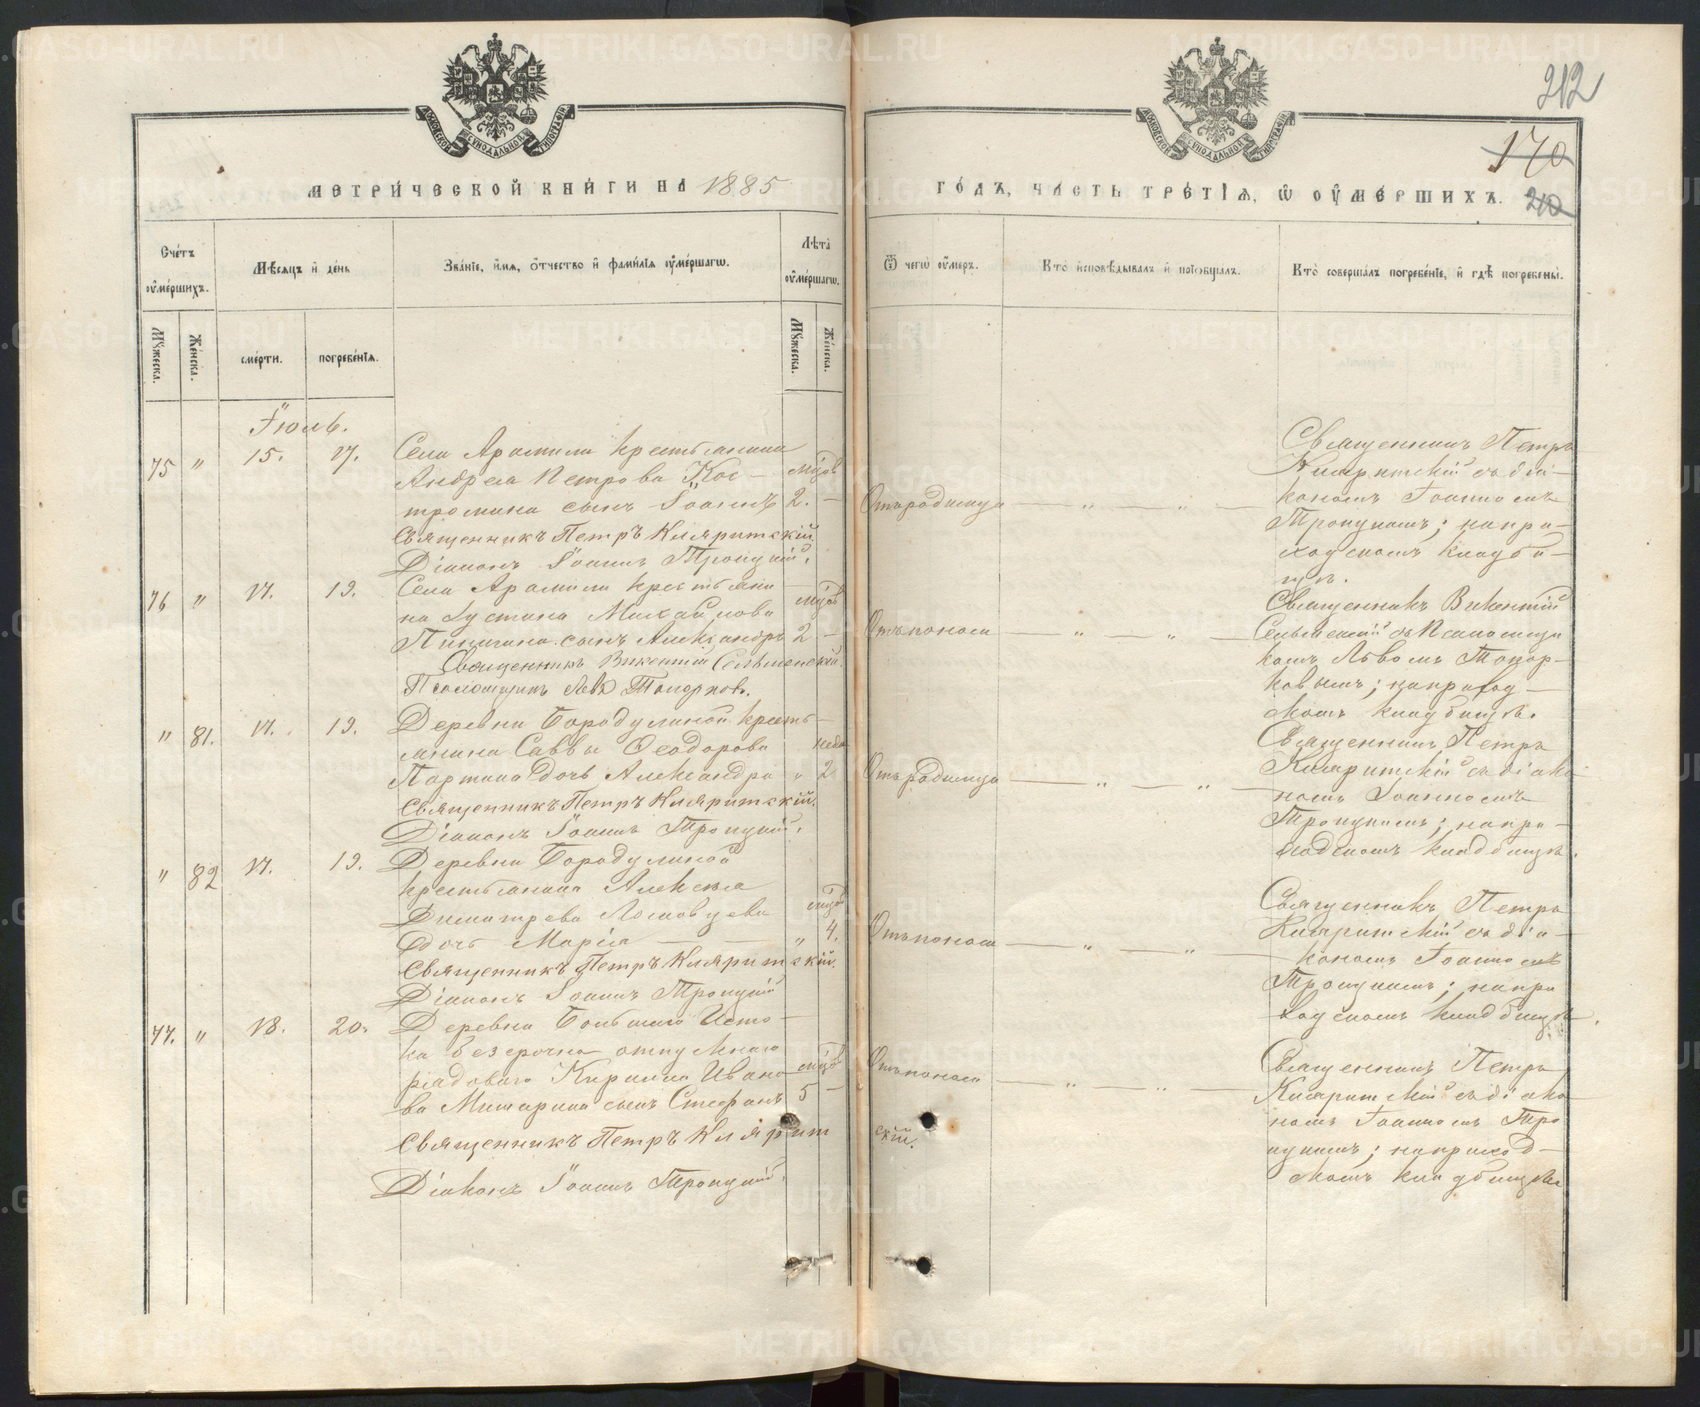 212
170
210
МЕТРИ́ЧЕСКОЙ КНИ́ГИ НА 1885
ГО́ДЪ, ЧАСТЬ ТРЕ́ТІѦ, Ѡ ОУМЕ́РШИХЪ.
Сче́тъ оумершихъ.
Мꙋжеска.
Же́нска.
Мѣсѧцъ и де́нь
сме́рти.
погребе́нїѧ.
Зва́нїе, и́мѧ, ѻ́тчество и фами́лїѧ оуме́ршагѡ.
Лѣта оуме́ршагѡ.
Мꙋжеска.
Же́нска.
Ѿ чегѡ оу́меръ.
Кто̀ исповѣ́дывалъ и прїѡбща́лъ.
Кто̀ соверша́лъ погребе́нїе, и гдѣ̀ погребены̀.
Іюль.
75 " 15. 17.
Села Арамили крестьянина
Андрея Петрова Кос-
тромина сынъ Іоаннъ 2. —
Священникъ Петръ Кляритскій.
Діаконъ Іоаннъ Троицкій.
Отъ родимца — " — " —
Священникъ Петръ
Кляритскій съ діа-
кономъ Іоанномъ
Троицкимъ; на при-
ходскомъ кладби-
щѣ.
76 " 17. 19.
Села Арамили крестьяни-
на Іустина Михайлова
сынъ Александръ 2 —
Священникъ Викентій Сельменскій.
Псаломщикъ Левъ Топорковъ.
Отъ поноса — " — " —
Священникъ Викентій
Сельменскій съ Псаломщи
комъ Львомъ Топор-
ковымъ; на приход-
скомъ кладбищѣ.
" 81. 17. 19.
Деревни Бородулиной кресть-
янина Саввы Ѳеодорова
Паргина дочь Александра " 2
Священникъ Петръ Кляритскій.
Діаконъ Іоаннъ Троицкій.
Отъ родимца — " — " —
Священникъ Петръ
Кляритскій съ діако-
номъ Іоанномъ
Троицкимъ; на при-
ходскомъ кладбищѣ.
" 82 17. 19.
Деревни Бородулиной
крестьянина Алексѣя
Димитрева
дочь Марія — " 4.
Священникъ Петръ Кляритскій.
Діаконъ Іоаннъ Троицкій
Отъ поноса — " — " —
Священникъ Петръ
Кляритскій съ діа-
кономъ Іоанномъ
Троицкимъ; на при
ходскомъ кладбищѣ.
77. " 18. 20.
Деревни Большаго Исто-
ка безсрочно отпускнаго
рядоваго Кирилла Ивано-
ва сынъ Стефанъ 5 —
Священникъ Петръ Клярит скій.
Діаконъ Іоаннъ Троицкій.
Отъ поноса — " — " —
Священникъ Петръ
Кляритскій съ діако-
номъ Іоанномъ Тро
ицкимъ; на приход-
скомъ кладбищѣ
METRIKI.GASO-URAL.RU